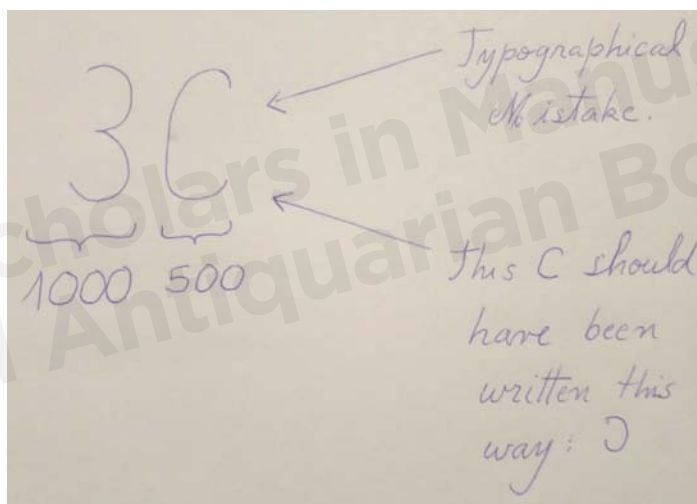 3C
1000 500
Typographical
Mistake.
This C should
have been
written this
way: Ɔ
Scholars in Manu
Antiquarian Bo